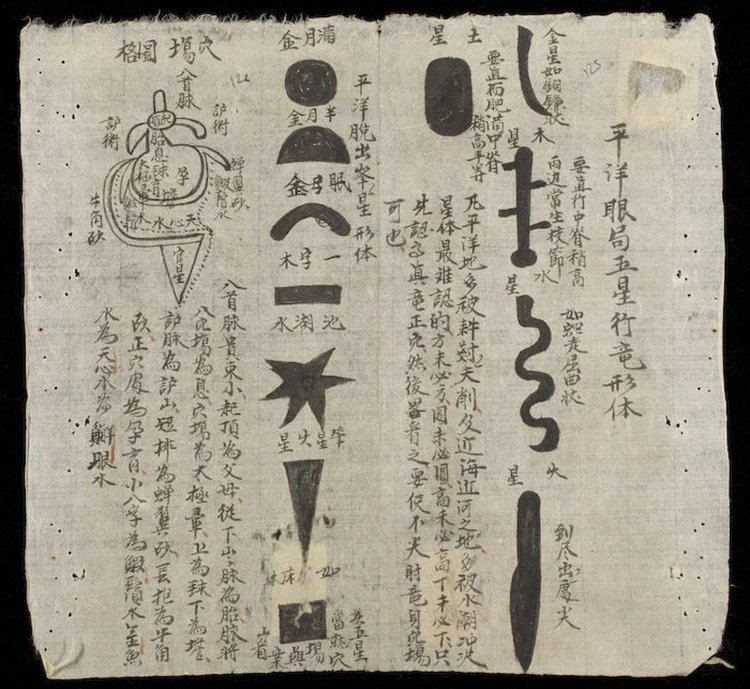 平洋眼局五星行竜形体
125
金星如銅鐮状
木星
要直行中脊稍高
两边常生枝節
水星
如蛇走屈曲状
火星
到尽出處尖
土星
要直而肥満中脊
稍高平
凡平洋地多被耕 夭削及近海近河之地多被水潮冲决
星体最难認的方未必方圆未必圓高未必高下未必下只
先認了真竜正穴然後畧看之要使不夭 竜 穴塲
可也
平洋脱出峯星形体
滿月金
半月金
眠弓金
一字木
池湖水
火星
如
五星
當點穴
塲與案
山看
穴塲圖格
126
入首脉
護術
護術
蟬翼砂
蝦鬚水
牛角砂
胎息
孕育
天心水
官星
入首脉貴束小起頂為父母從下山之脉為胎脉将
入穴塲為息穴塲為太極暈上為毬下為
護脉為護山短 為蟬翼砂長抱為牛角
砂正穴處為孕育小八字為蝦鬚水金魚
水為天心水亦 眼水